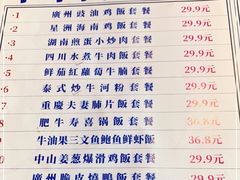 1 廣州豉油鸡飯套餐 29.9元
2 星洲海南鸡飯套餐 29.9元
3 湖南煎蛋小炒肉套餐 29.9元
4 四川水煮牛肉飯套餐 29.9元
5 鲜茄紅蘿蔔牛腩套餐 29.9元
6 泰式炒牛河粉套餐 29.9元
7 重慶夫妻肺片飯套餐 29.9元
8 肥牛寿喜锅飯套餐 36.8元
牛油果三文魚鲍鱼鲜虾飯 36.8元
中山姜葱爆滑鸡飯套餐 29.9元
廣州脆皮燒鵝飯套餐 29.9元